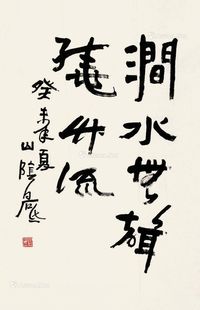 澗水無聲
繞竹流
癸未夏
山陰